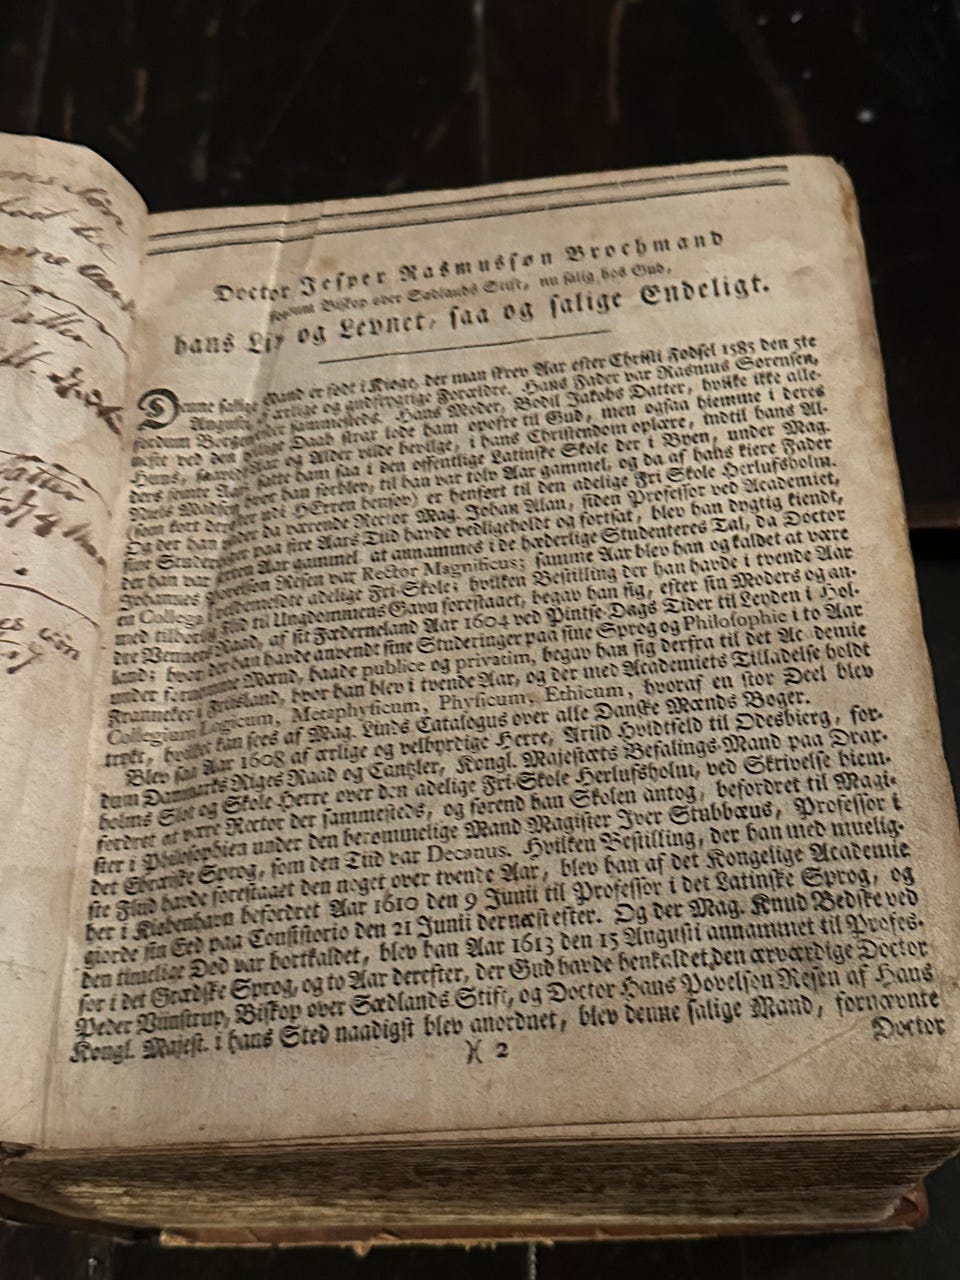 Doctor Jesper Rasmussøn Brochmand
fordum Biskop over Sædlands Stift, nu salig hos Gud,
hans Liv og Levnet, saa og salige Endeligt.
Denne salige Mand er født i Kiøge, der man skrev Aar efter Christi Fødsel 1585 den 5te
Augusti, af ærlige og gudfrygtige Forældre. Hans Fader var Rasmus Sørensen,
fordum Borgemester sammesteds. Hans Moder, Bodil Jakobs Datter, hvilke ikke alle-
neste ved den hellige Daab strax lode ham opofre til Gud, men ogsaa hiemme i deres
Huus, saavidt Aar og Alder vilde bevilge, i hans Christendom oplære, indtil hans Al-
ders femte Aar, satte ham saa i den offentlige Latinske Skole der i Byen, under Mag.
Niels Madsen, hvor han forblev, til han var tolv Aar gammel, og da af hans kiere Fader
(som kort derefter udi HErren hensov) er henført til den adelige Fri Skole Herlufsholm.
Og der han under da værende Rector Mag. Johan Alan, siden Professor ved Academiet,
sine Studeringer paa fire Aars Tiid havde vedligeholdt og fortsat, blev han dygtig kiendt,
der han var sexten Aar gammel at annammes i de hæderlige Studenteres Tal, da Doctor
Johannes Povelsøn Resen var Rector Magnificus; samme Aar blev han og kaldet at være
en Collega i veldemeldte adelige Fri-Skole; hvilken Bestilling der han havde i tvende Aar
med tilbørlig Flid til Ungdommens Gavn forestaaet, begav han sig, efter sin Moders og an-
dre Venners Raad, af sit Fæderneland Aar 1604 ved Pintse-Dags Tider til Leyden i Hol-
land; hvor der han havde anvendt sine Studeringer paa sine Sprog og Philosophie i to Aar
under fornemme Mænd, baade publice og privatim, begav han sig derfra til det Academie
Franneker i Friisland, hvor han blev i tvende Aar, og der med Academiets Tilladelse holdt
Collegium Logicum, Metaphysicum, Physicum, Ethicum, hvoraf en stor Deel blev
trykt, hvilket kan sees af Mag. Linds Catalogus over alle Danske Mænds Bøger.
Blev saa Aar 1608 af ærlige og velbyrdige Herre, Arild Hvidtfeld til Odesbierg, for-
dum Danmarks Riges Raad og Cantzler, Kongl. Majestæts Befalings-Mand paa Drax-
holms Slot og Skole-Herre over den adelige Fri-Skole Herlufsholm, ved Skrivelse hiem-
fordret at være Rector der sammesteds, og førend han Skolen antog, befordret til Magi-
ster i Philosophien under den berømmelige Mand Magister Iver Stubbæus, Professor i
det Ebræiske Sprog, som den Tiid var Decanus. Hvilken Bestilling, der han med muelig-
ste Fliid havde forestaaet den noget over tvende Aar, blev han af det Kongelige Academie
her i Kiøbenhavn befordret Aar 1610 den 9 Junii til Professor i det Latinske Sprog, og
giorde sin Eed paa Consistorio den 21 Junii dernæst efter. Og der Mag. Knud Bedske ved
den timelige Død var bortkaldet, blev han Aar 1613 den 15 Augusti annammet til Profes-
sor i det Grædske Sprog, og to Aar derefter, der Gud havde henkaldet den ærværdige Doctor
Peder Vinstrup, Biskop over Sædlands Stift, og Doctor Hans Povelsøn Resen af Hans
Kongl. Majest. i hans Sted naadigst blev anordnet, blev denne salige Mand, fornævnte
)( 2
Doctor